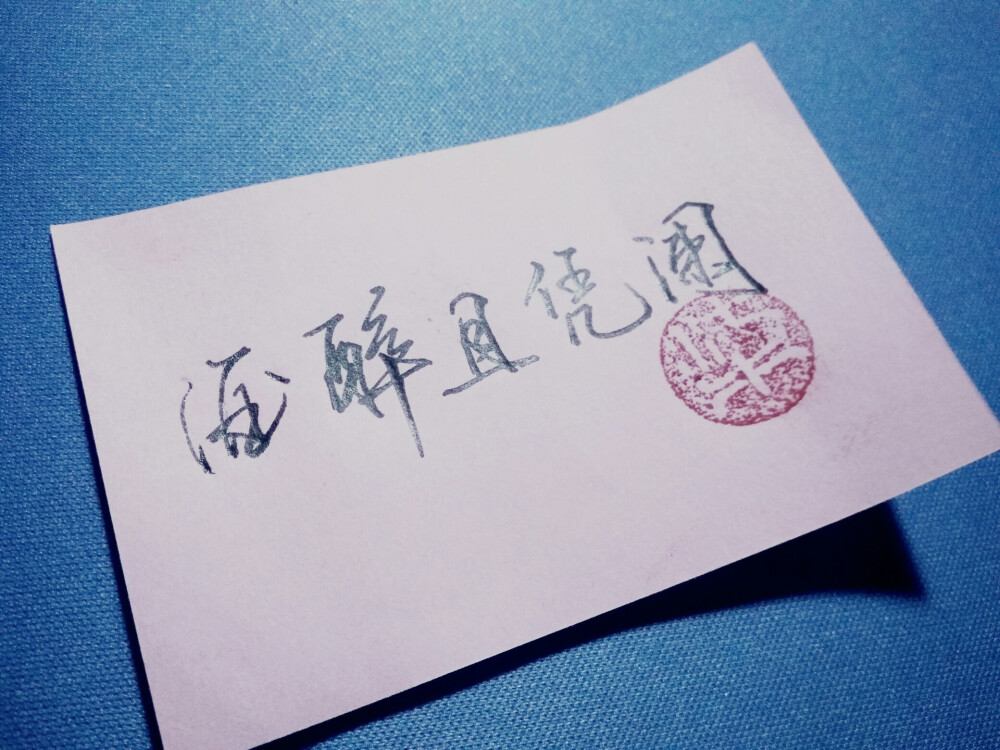 酒醉且凭阑